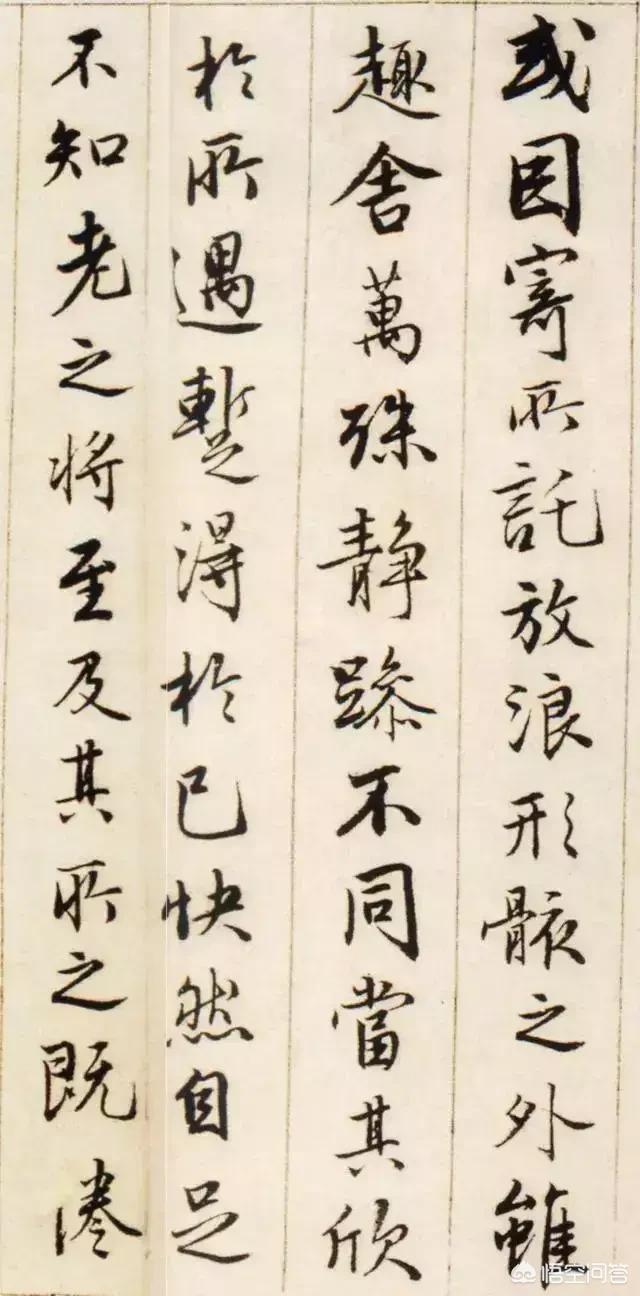 或因寄所託放浪形骸之外雖
趣舍萬殊静躁不同當其欣
於所遇暫得於己快然自足
不知老之将至及其所之既惓
悟空问答